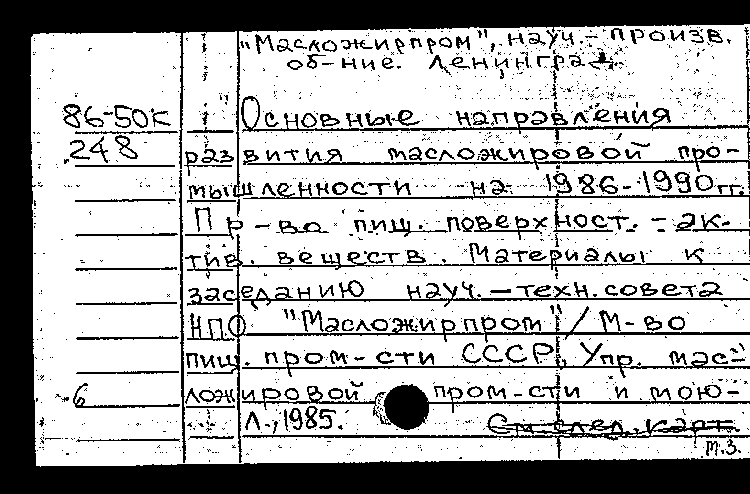 "Масложирпром", науч.- произв.
об-ние. Ленинград.
86-50к "Основные направления
248 развития масложировой про-
мышленности на 1986-1990 гг.
Пр-во пищ. поверхност.-ак-
тив. веществ. Материалы к
заседанию науч.-техн. совета
НПО "Масложирпром" / М-во
пищ. пром-сти СССР, Упр. мас-
6 ложировой пром-сти и мою-
Л., 1985. См. след. карт.
т.з.